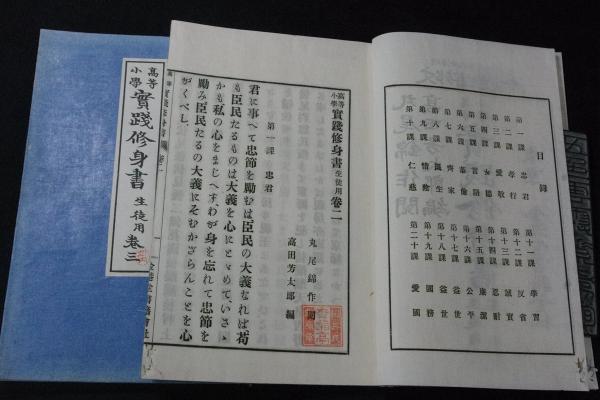 目録
第一課　忠君
第二課　孝行
第三課　愛敬
第四課　女德
第五課　言語
第六課　容儀
第七課　齊家
第八課　養生
第九課　情慾
第十課　仁慈
第十一課　學習
第十二課　反省
第十三課　誠實
第十四課　忍耐
第十五課　廉潔
第十六課　公平
第十七課　益世
第十八課　益世
第十九課　國務
第二十課　愛國
高等小學實踐修身書生徒用卷二
丸尾錦作閱
高田芳太郎編
第一課　忠君
君に事へて忠節を勵むは臣民の大義なれば苟
も臣民たるものは大義を心にとゞめて、いさゝ
かも私の心をまじへず、わが身を忘れて忠節を
勵み臣民たるの大義にそむかざらんことを心
がくべし、
高等小學實踐修身書生徒用　卷三